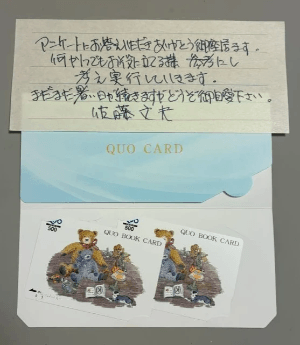 アンケートにお答えいただきありがとう御座居ます。
何かでもお役に立てる様 参考にし
考え実行していきます。
まだまだ暑い日が続きますがどうぞ御自愛下さい。
佐藤
QUO CARD
500
QUO BOOK CARD
500
QUO BOOK CARD